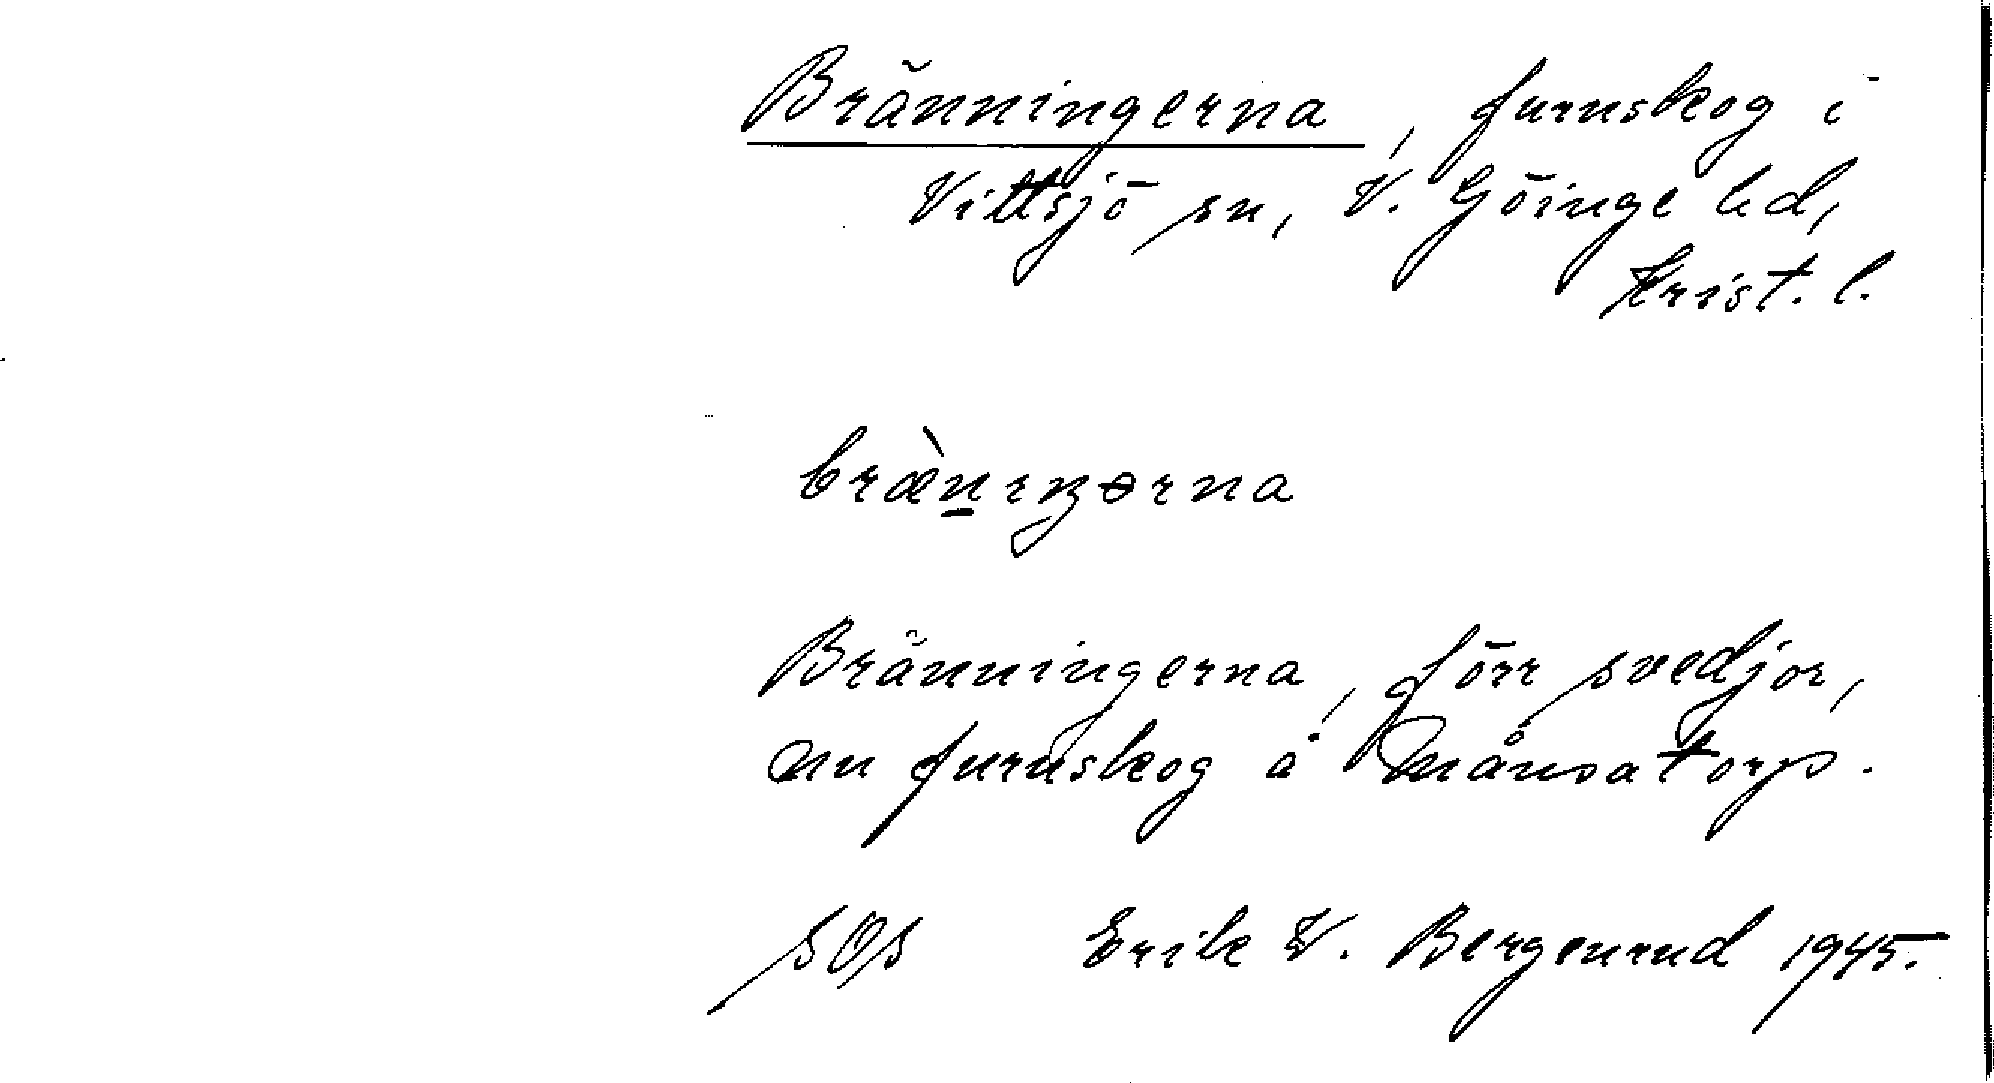 Bränningerna, furuskog i
Vittsjö sn, V. Göinge hd,
Krist. l.
bræ̀n̲ıŋərna
Bränningerna, förr svedjor,
nu furuskog å Månsatorps.
SOS Erik V. Bergenrud 1945.